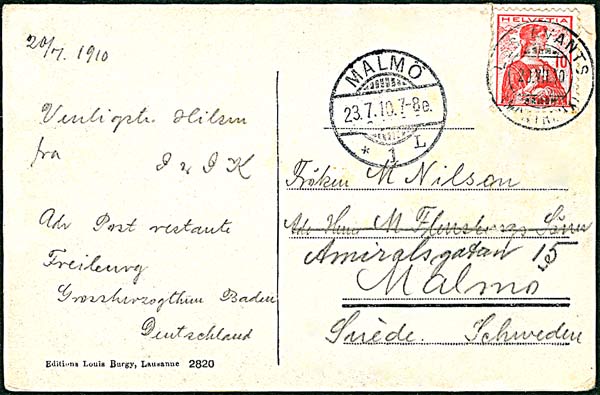 20/7. 1910
Venligste Hilsen
fra I & I K
Adr Post restante
Freiburg
Grossherzogthum Baden
Deutschland
Editions Louis Burgy, Lausanne 2820
MALMÖ
23.7.10.7-8e.
* 1 L
HELVETIA
10
LES AVANTS
Fröken M Nilson
Adr Herr M Flensburgs Söner
Amiralsgatan 15
Malmö
Suède. Schweden